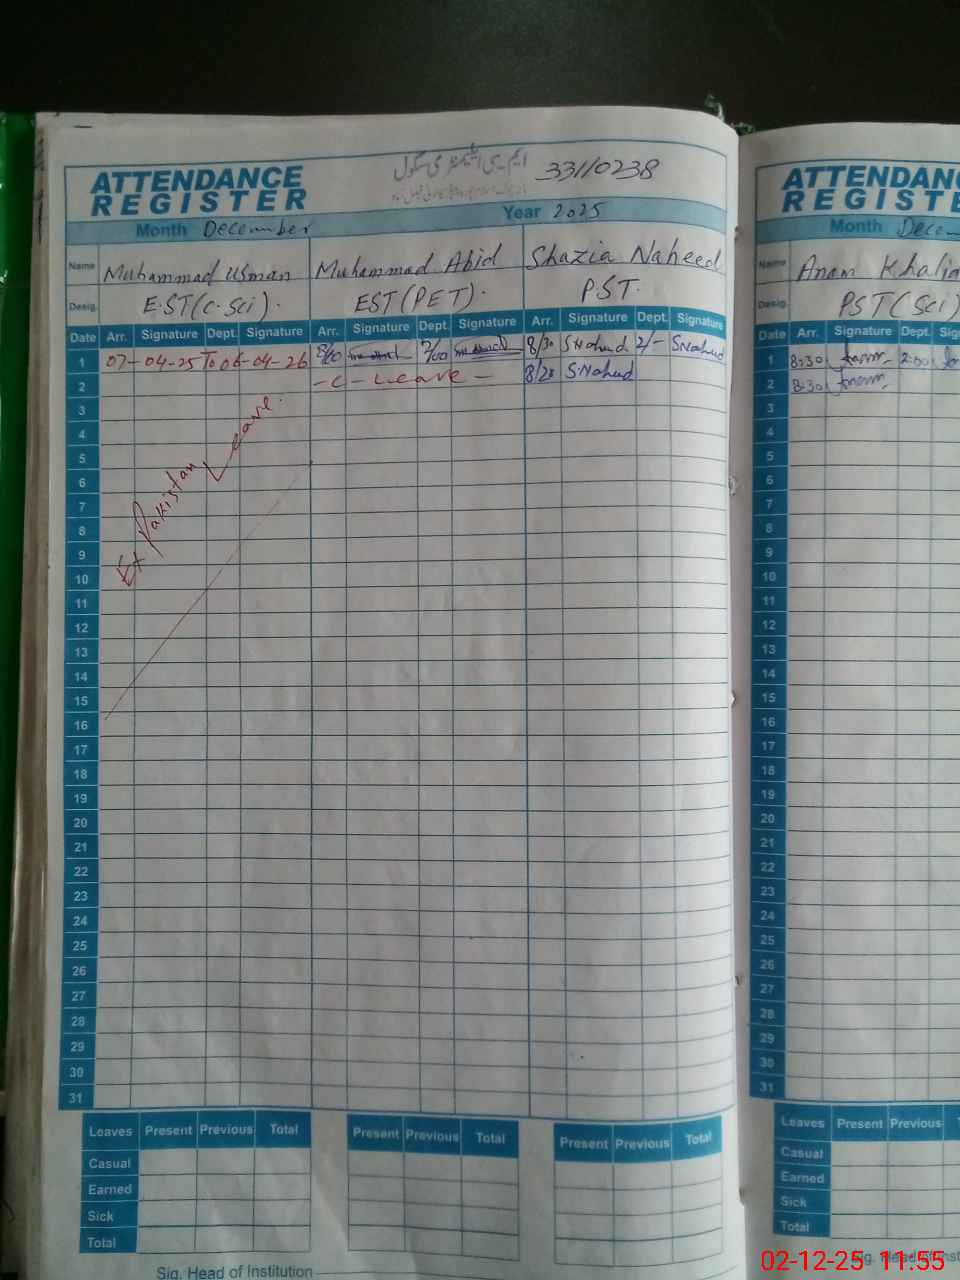 ATTENDANCE
REGISTER
ایم سی ایلیمنٹری سکول
33110238
Month December
Year 2025
Name Muhammad Usman Muhammad Abid Shazia Naheed
Desig. E.ST(C.Sci). EST(PET). PST.
Date Arr. Signature Dept. Signature Arr. Signature Dept. Signature Arr. Signature Dept. Signature
1 07-04-25 To 06-04-26 8/30 S.Nahud 2/- S.Nahud
2 -C-Leave- 8/28 S.Nahud
3
4
5
6
7
8
9
10
11
12
13
14
15
16
17
18
19
20
21
22
23
24
25
26
27
28
29
30
31
Ex Pakistan Leave.
Leaves Present Previous Total Present Previous Total Present Previous Total
Casual
Earned
Sick
Total
Sig. Head of Institution
ATTENDANC
REGISTE
Month Decem
Name Anam Khalid
Desig. PST(Sci)
Date Arr. Signature Dept. Sig
1 8:30 2:00
2 8:30
3
4
5
6
7
8
9
10
11
12
13
14
15
16
17
18
19
20
21
22
23
24
25
26
27
28
29
30
31
Leaves Present Previous
Casual
Earned
Sick
Total
Sig. Head of Inst
02-12-25 11:55